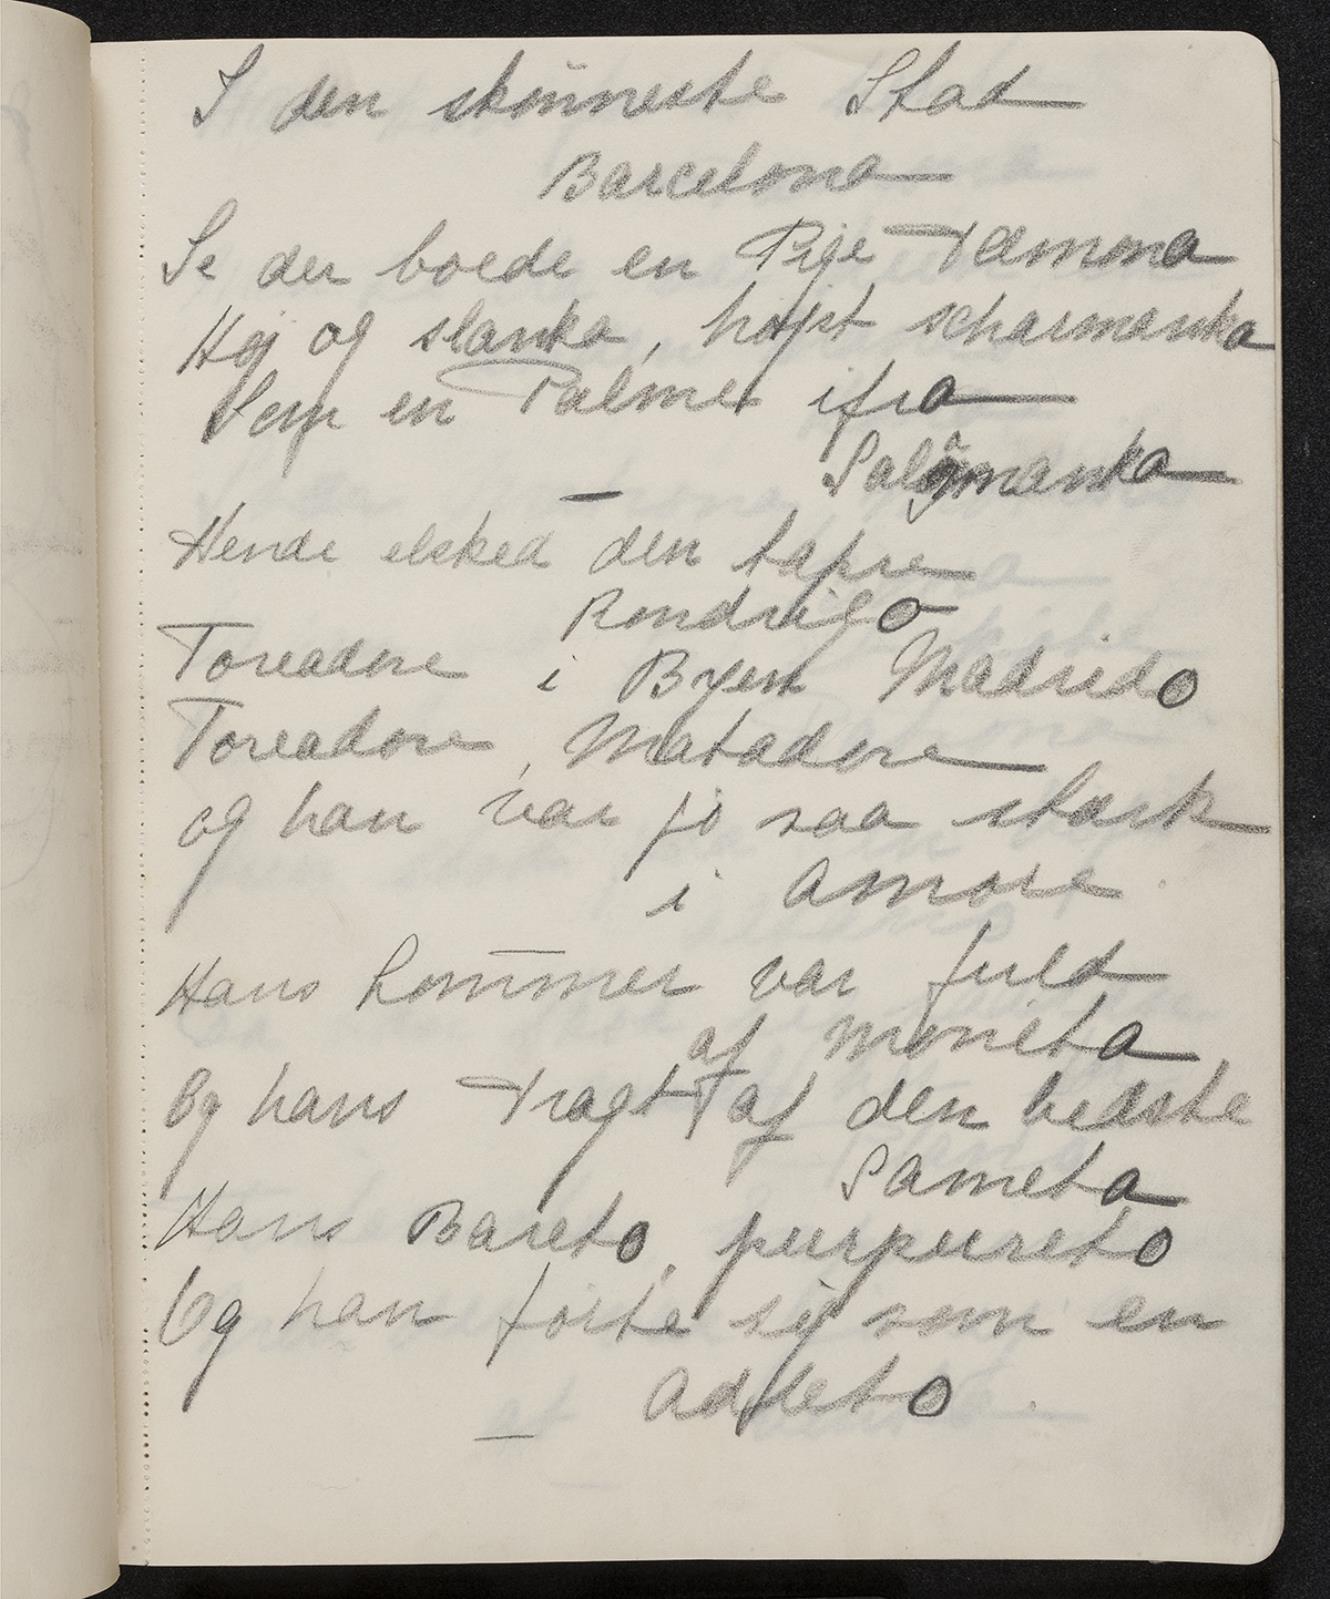 I den skönneste Stad
Barcelona
Se der boede en Pige Tamona
Høj og slanka, højst scharmanka
Som en Palme ifra
Salamanka
Hende elsked den tapre
Rondrigo
Toreadore i Byen Madrido
Toreadore, Matadore
og han var jo saa stærk
i Amore.
Hans Lommer var fuld
af Moneta
Og hans Tragt af den bedste
Sameta
Hans Bareto, purpureto
Og han förte sig som en
Adleto.